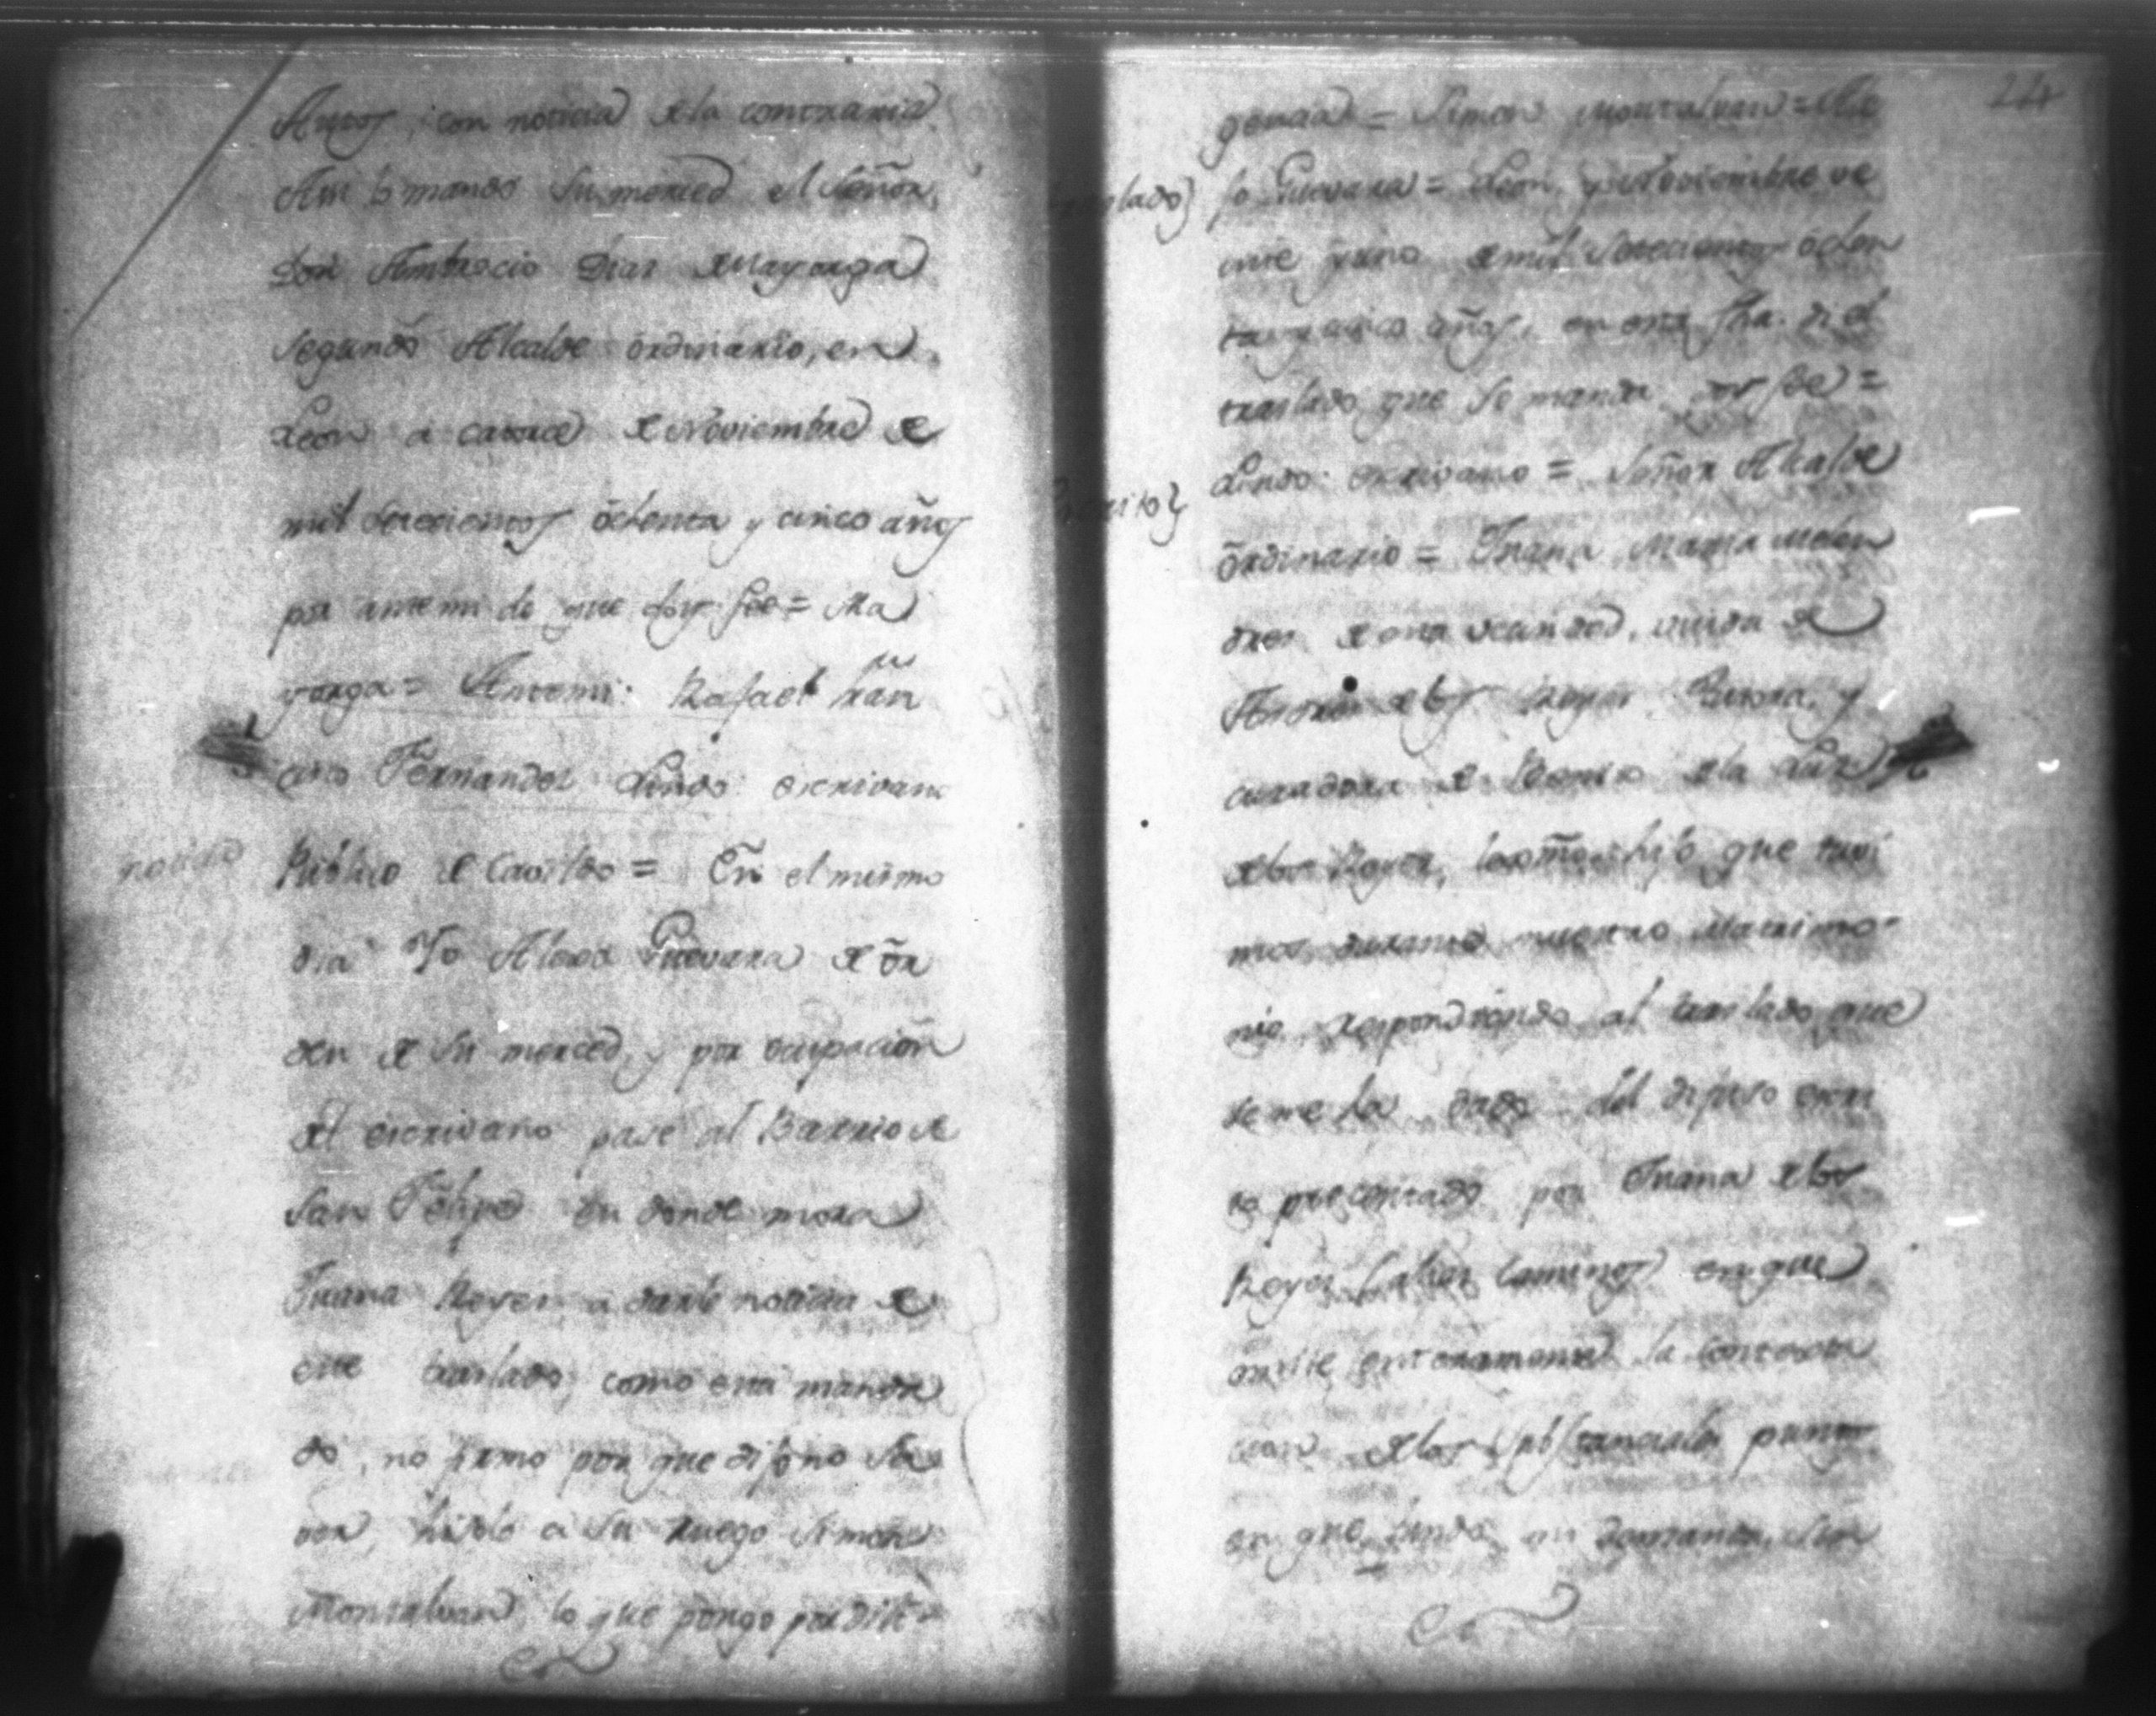 Autos, con noticia de la contraria
Asi lo mando Su merced el Señor
Don Ambrocio Dias de Mayorga
segundo Alcalde ordinario, en
Leon a catorce de Noviembre de
mil setecientos ochenta y cinco años
por ante mi de que doy fee = Ma
yorga = Ante mi: Rafael Fran
cisco Fernandez Lindo: escrivano
noticia
Publico de Cavildo = En el mismo
dia Yo Alexo Guevara de or
den de Su merced, y por ocupacion
del escrivano pasé al Barrio de
San Felipe en donde mora
Juana Reyes a darle noticia de
este traslado, como esta manda
do, no firmo por que dijo no Sa
ver, hisolo a su ruego Simon
Montalvan, lo que pongo por dili
224
gencia = Simon Montalvan = Ale
traslado} jo Guevara = Leon, y Noviembre ve
inte y uno de mil setecientos ochen
ta y cinco años, en esta fha. di el
traslado que se manda doy fee =
Lindo: escrivano = Señor Alcalde
Escrito}
ordinario = Juana Maria
de esta vecindad, viuda de
de los Reyes y
curadora de de la Luz
de los Reyes, hijo que tuvi
mos durante nuestro Matrimo
nio respondiendo al traslado que
se me ha dado del difuso escri
to precentado por Juana de los
Reyes en que
omite enteramente la contesta
cion de los substanciales puntos
en que fundo mi demanda,